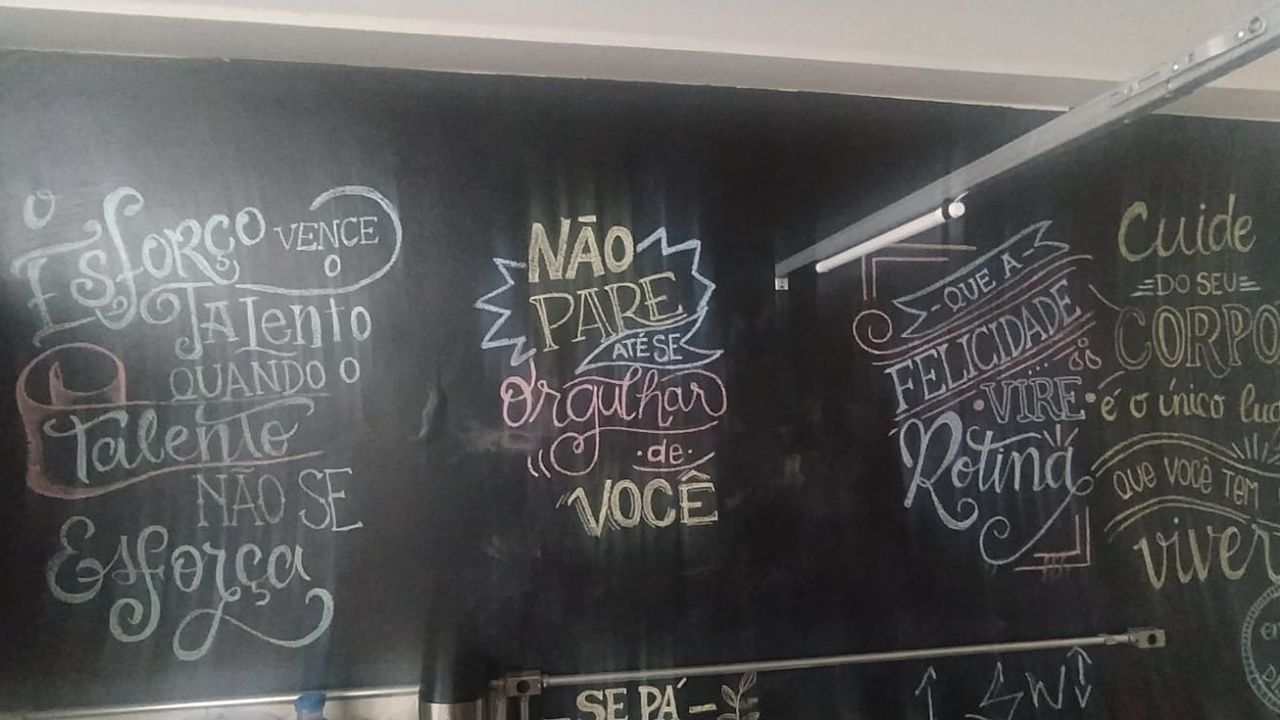 O
Esforço VENCE
O
Talento
QUANDO O
Talento
NÃO SE
Esforça
NÃO
PARE
ATÉ SE
Orgulhar
de
VOCÊ
QUE A
FELICIDADE
VIRE
Rotina
Cuide
DO SEU
CORPO
é o único
QUE VOCÊ TEM
viver
SE PÁ